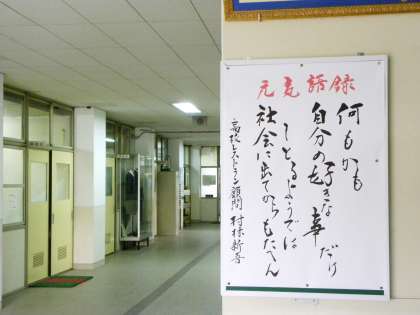 元気語録
何もかも
自分の好きな事だけ
しとるようでは
社会に出てからもたへん
高校レストラン顧問 村林新吾